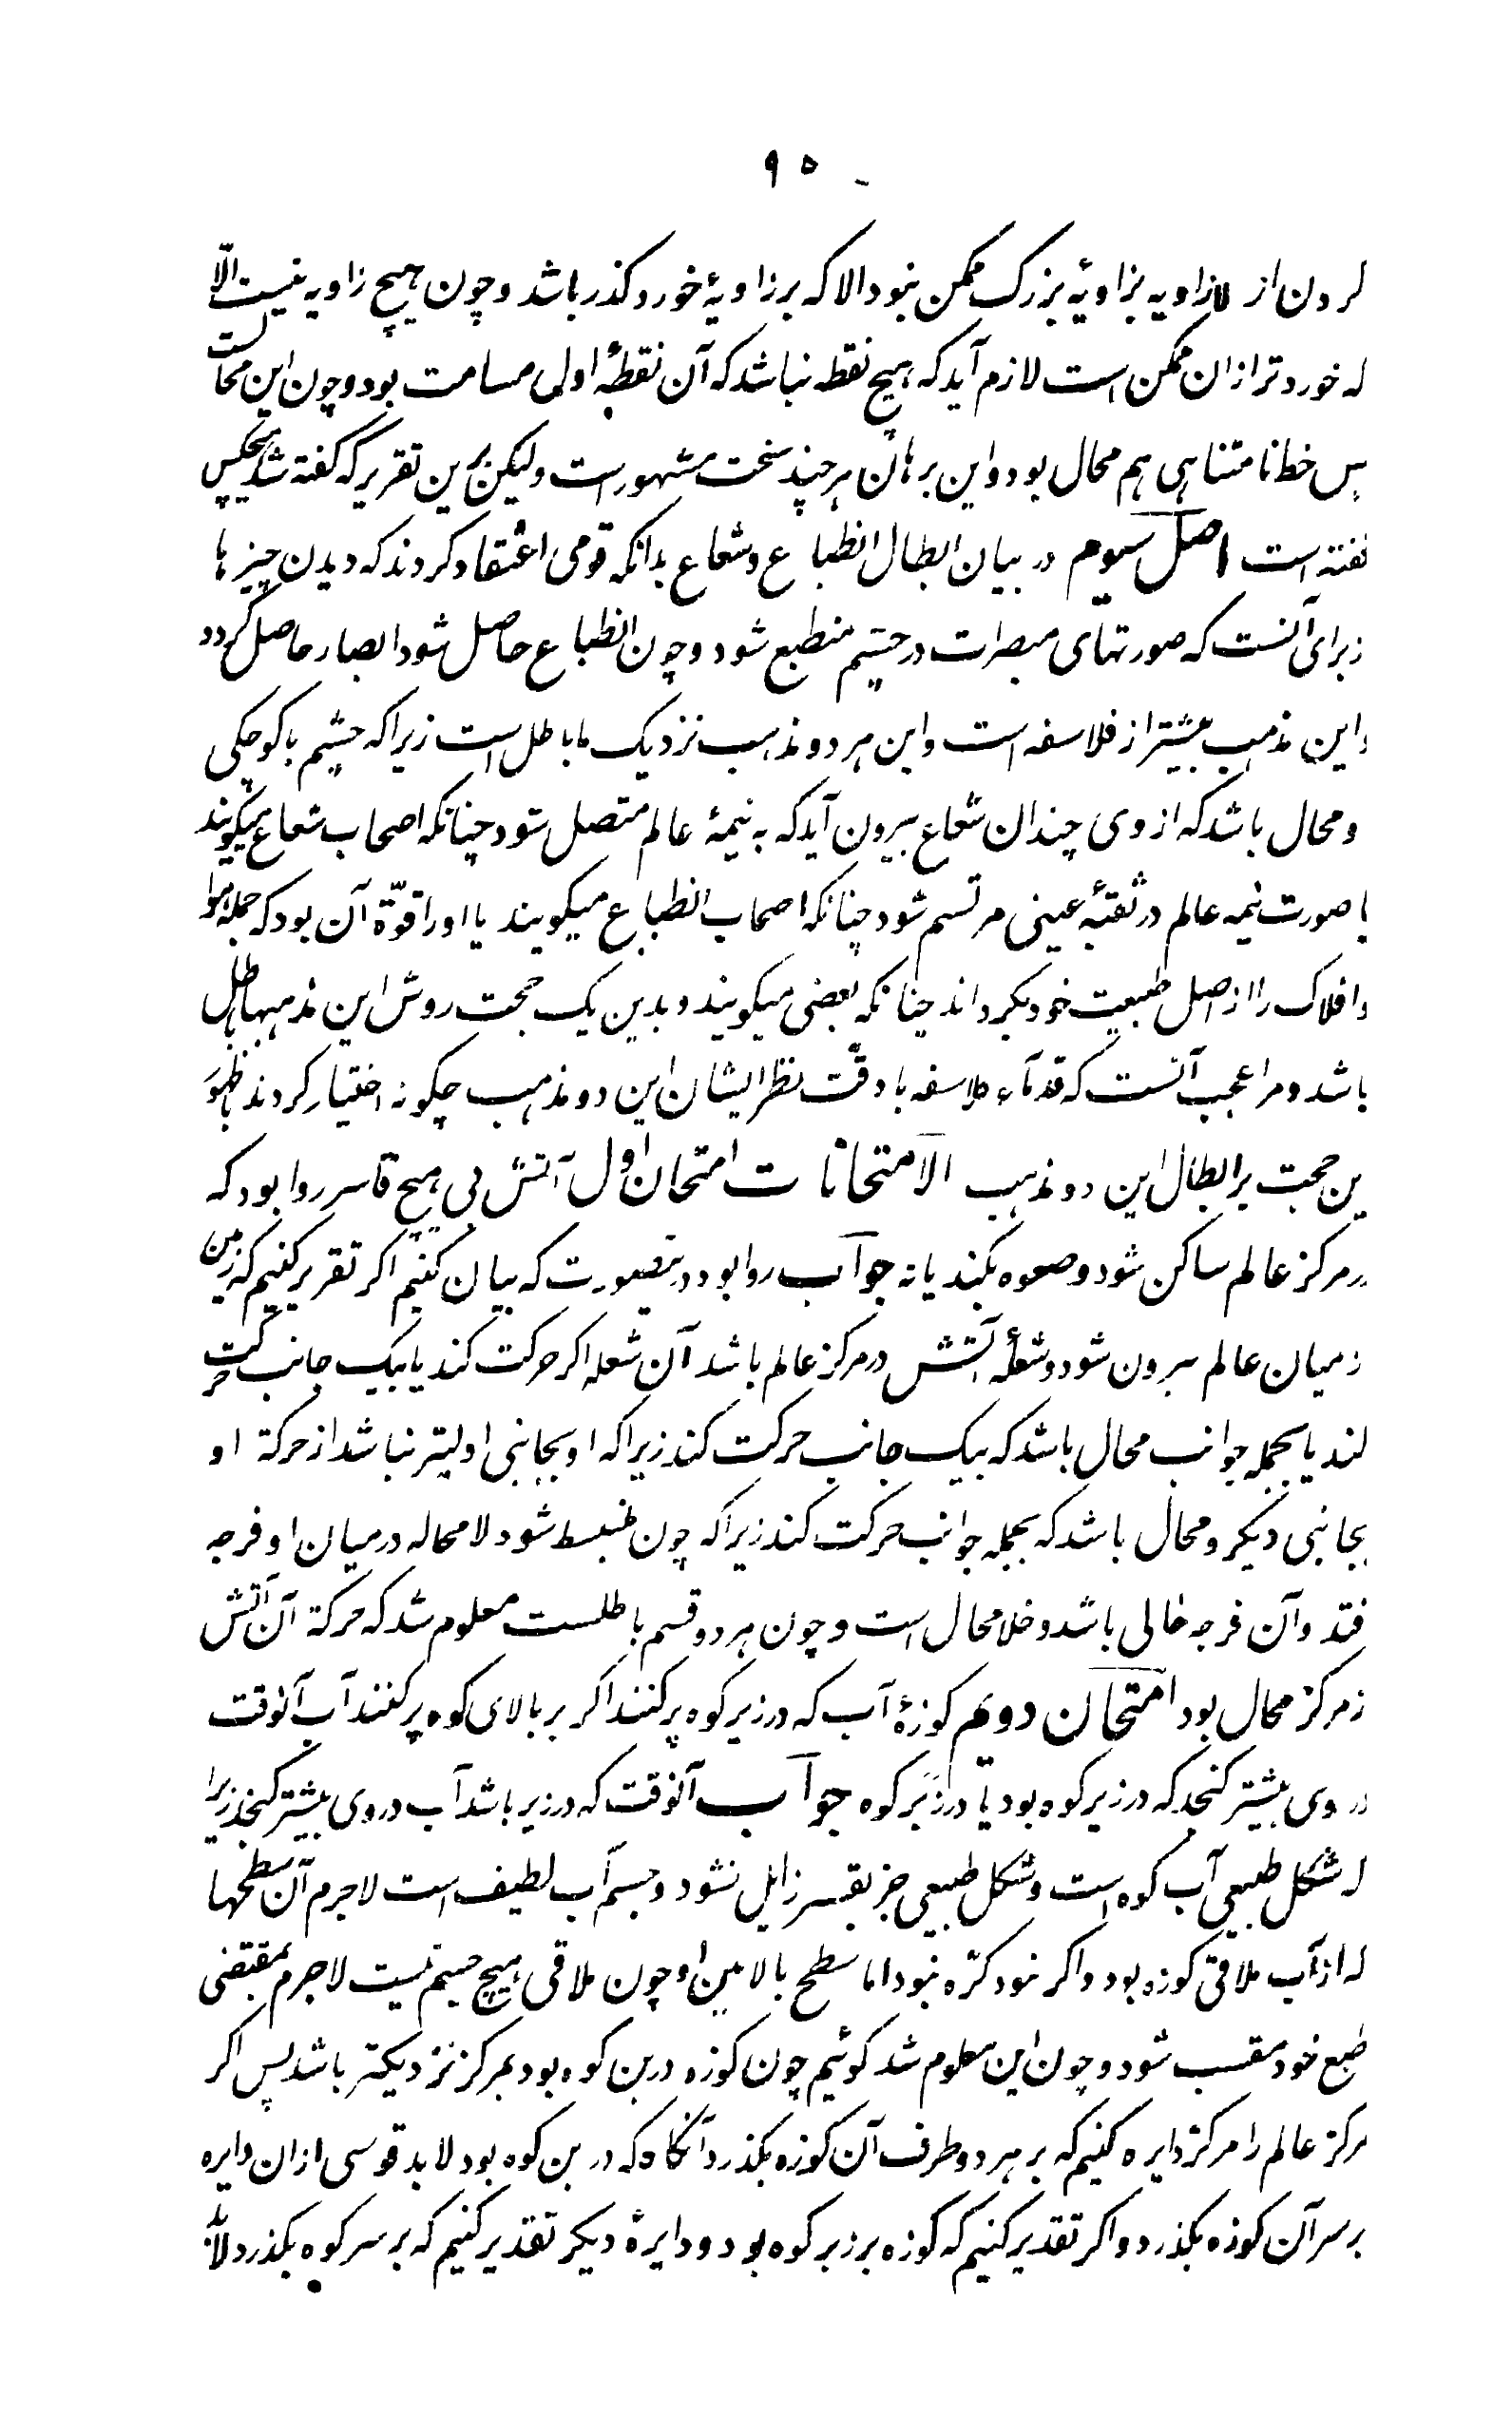 ۹۵
کردن از زاویه بزاویهٔ بزرک ممکن نبود الا که بر زاویهٔ خورد کذر باشد و چون هیچ زاویه نیست الّا
که خوردتر ازان ممکن است لازم آید که هیچ نقطه نباشد که آن نقطهٔ اولی مسامتت بود و چون این محالست
پس خط نامتناهی هم محال بود و این برهان هرچند سخت مشهورست ولیکن برین تقریر که گفته شد هیچکس
نگفته است اصل سیوم در بیان ابطال انطباع و شعاع بدانکه قومی اعتقاد کردند که دیدن چیزها
زبرای آنست که صورتهای مبصرات در چشم منطبع شود و چون انطباع حاصل شود ابصار حاصل گردد
و این مذهب بیشتر از فلاسفه است و این هر دو مذهب نزدیک ما باطل است زیراکه چشم با کوچکی
و محال باشد که از وی چندان شعاع بیرون آید که به نیمهٔ عالم متصل شود چنانکه اصحاب شعاع میکویند
یا صورت نیمه عالم در ثقبهٔ عینی مرتسم شود چنانکه اصحاب انطباع میکویند یا اورا قوّة آن بود که جمله هوا
و افلاک را از اصل طبیعت خود بکرداند چنانکه بعضی میکویند و بدین یک حجت روشن این مذهبها باطل
باشد و مرا عجب آنست که قدماء فلاسفه با دقّت نظر ایشان این دو مذهب چکونه اختیار کردند با ظهور
این حجت بر ابطال این دو مذهب الامتحانات امتحان اول آتش بی هیچ قاسر روا بود که
در مرکز عالم ساکن شود و صعود نکند یا نه جواب روا بود درینصورت که بیان کنیم اکر تقریر کنیم که زمین
زمیان عالم بیرون شود و شعلهٔ آتش در مرکز عالم باشد آن شعله اکر حرکت کند یا بیک جانب حرکت
کند یا بجمله جوانب محال باشد که بیک جانب حرکت کند زیراکه او بجانبی اولیتر نباشد از حرکة او
بجانبی دیکر و محال باشد که بجمله جوانب حرکت کند زیراکه چون منبسط شود لامحاله در میان او فرجه
افتد و آن فرجه خالی باشد و خلا محال است و چون هر دو قسم باطلست معلوم شد که حرکة آن آتش
زمرکز محال بود امتحان دوم کوزهٔ آب که در زیر کوه پر کنند اکر بر بالای کوه پر کنند آب آنوقت
در وی بیشتر کنجد که در زیر کوه بود یا در زبر کوه جواب آنوقت که در زیر باشد آب در وی بیشتر کنجد زیرا
که شکل طبیعی آب کره است و شکل طبیعی جز بقسر زایل نشود و جسم آب لطیف است لاجرم آن سطحها
که از آب ملاقی کوزه بود و اکر نبود کره نبود اما سطح بالایین او چون ملاقی هیچ جسم نیست لاجرم بمقتضی
طبع خود مقبب شود و چون این معلوم شد کوئیم چون کوزه در بن کوه بود بمرکز نزدیکتر باشد پس اکر
مرکز عالم را مرکز دایره کنیم که بر هر دو طرف آن کوزه بکذرد آنکاه که در بن کوه بود لابد قوسی ازان دایره
بر سر آن کوزه بکذرد و اکر تقدیر کنیم که کوزه بر زبر کوه بود و دایرهٔ دیکر تقدیر کنیم که بر سر کوه بکذرد لابد